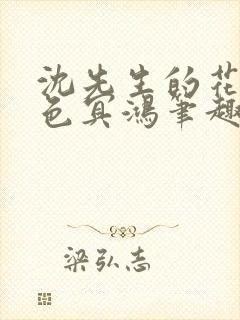 沈先生的花
色宾鸿笔趣
梁弘志